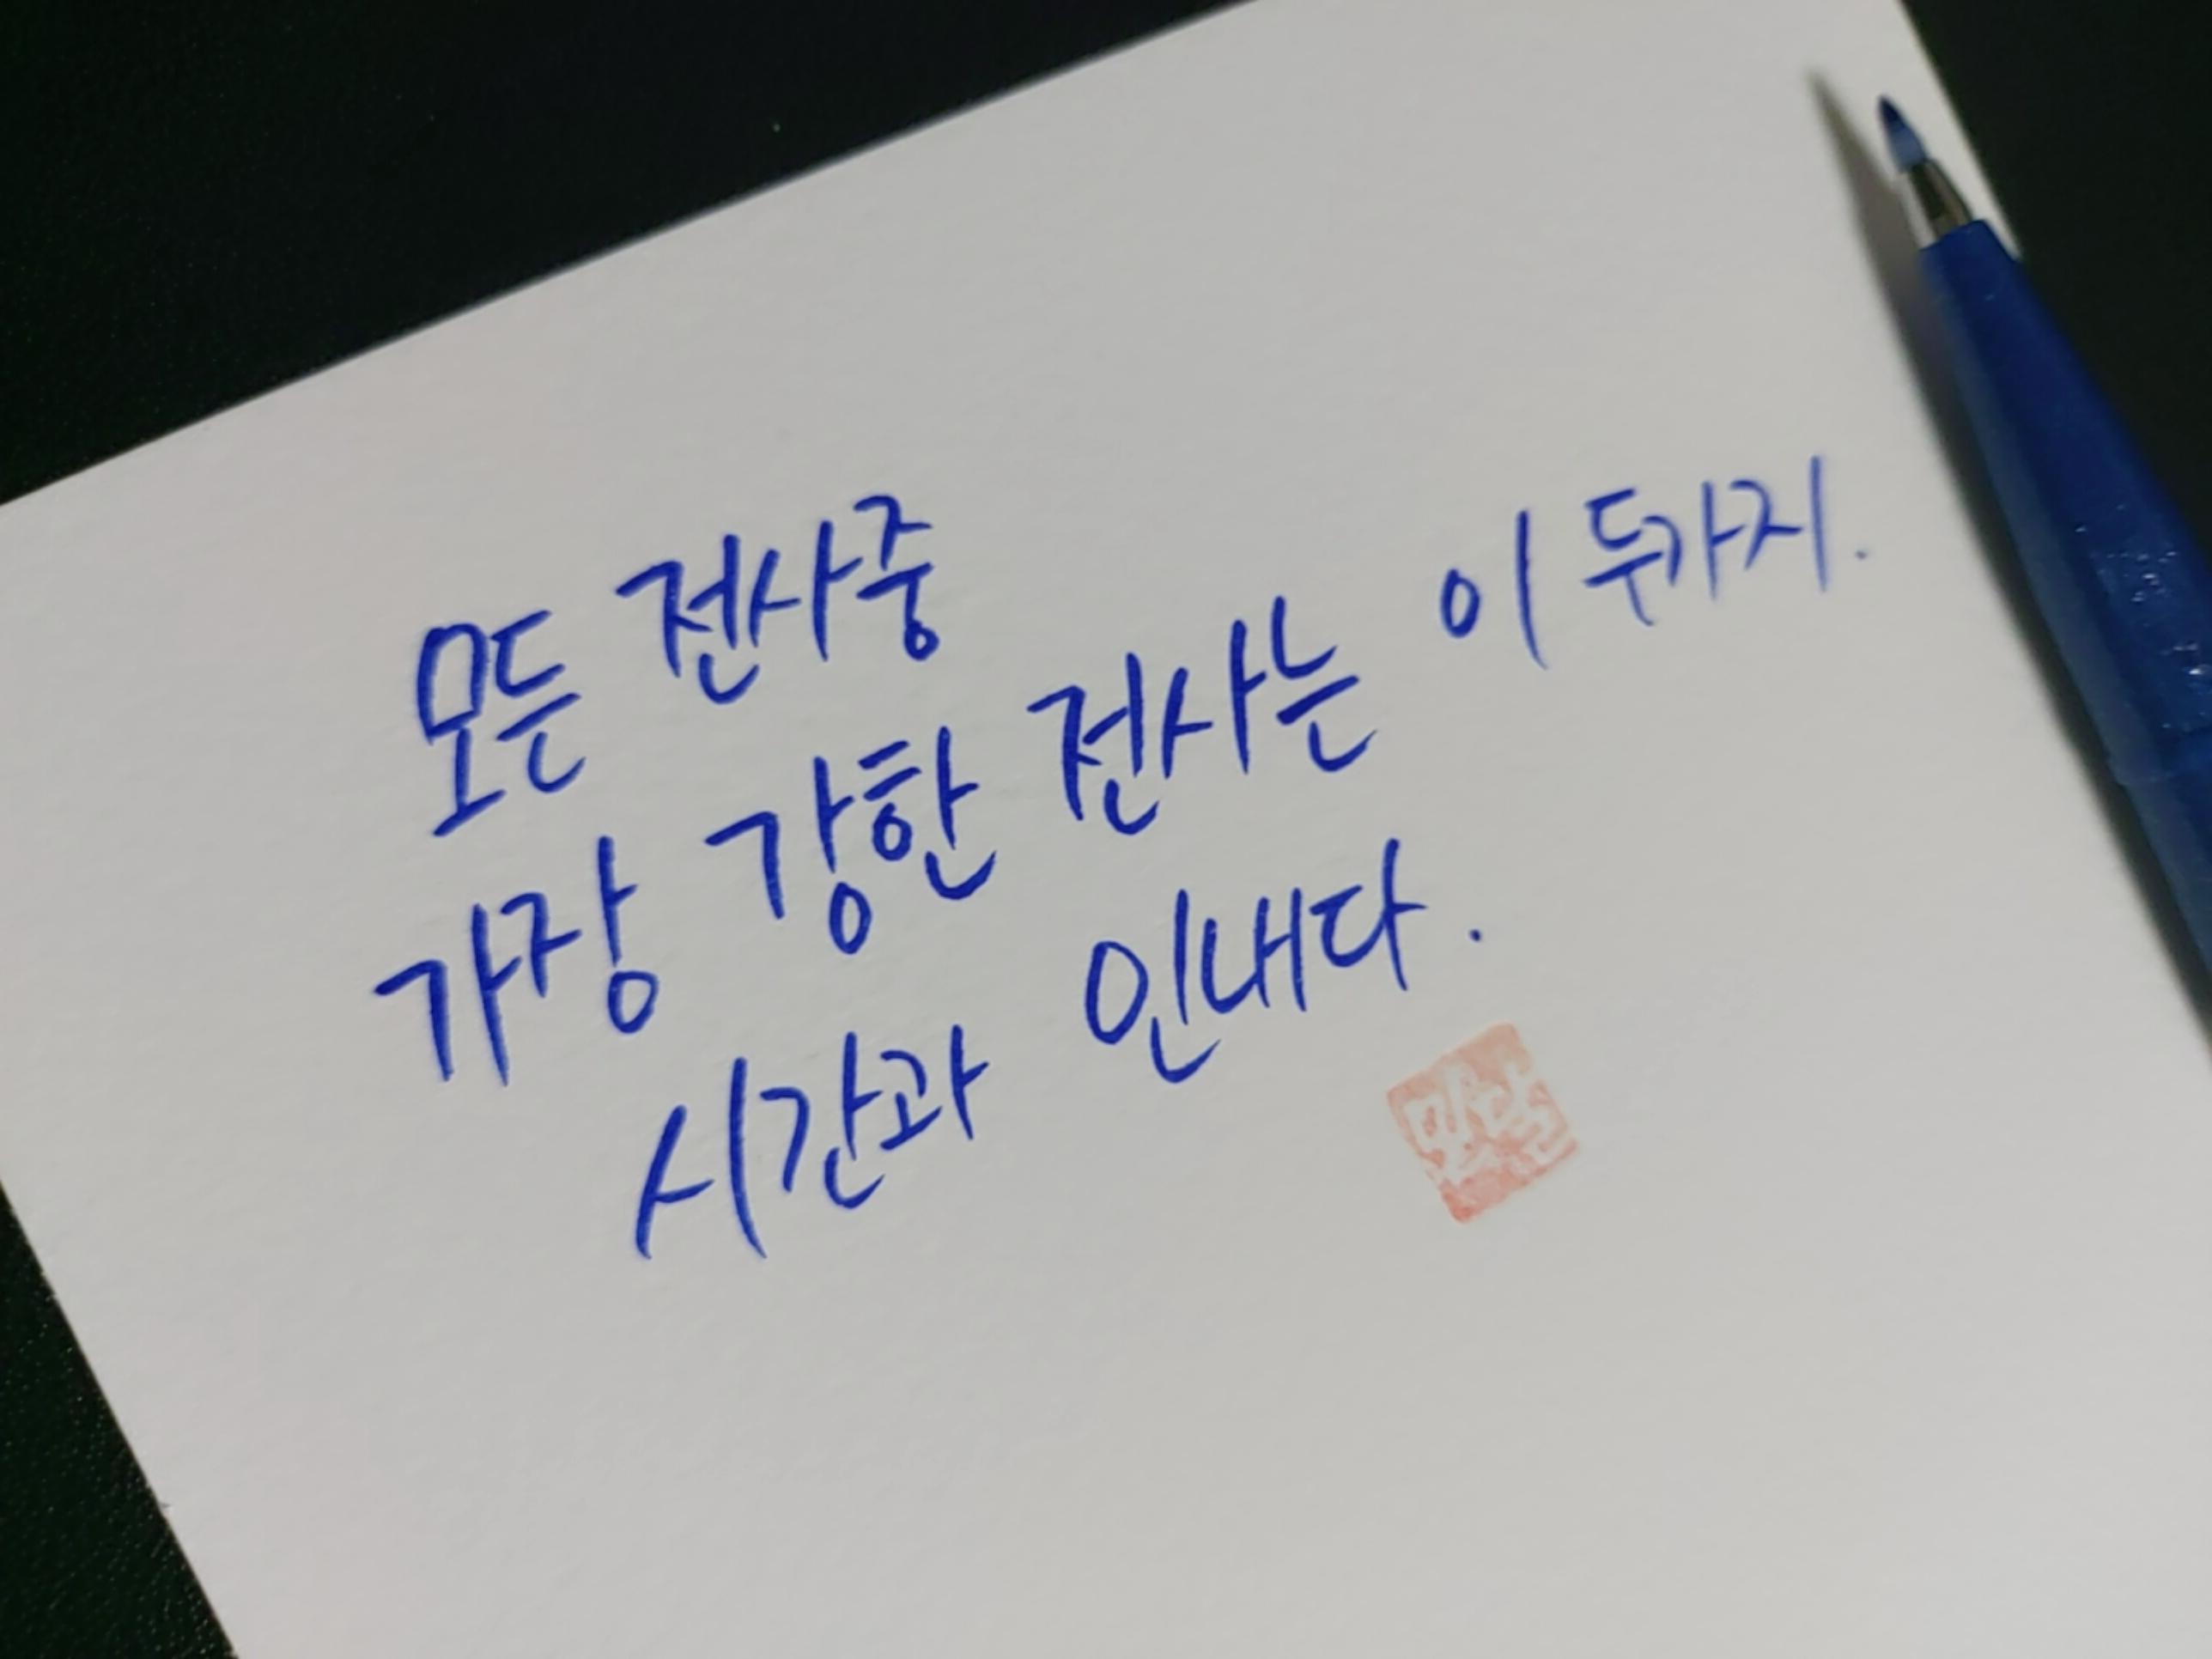 모든 전사중
가장 강한 전사는 이 두가지.
시간과 인내다.